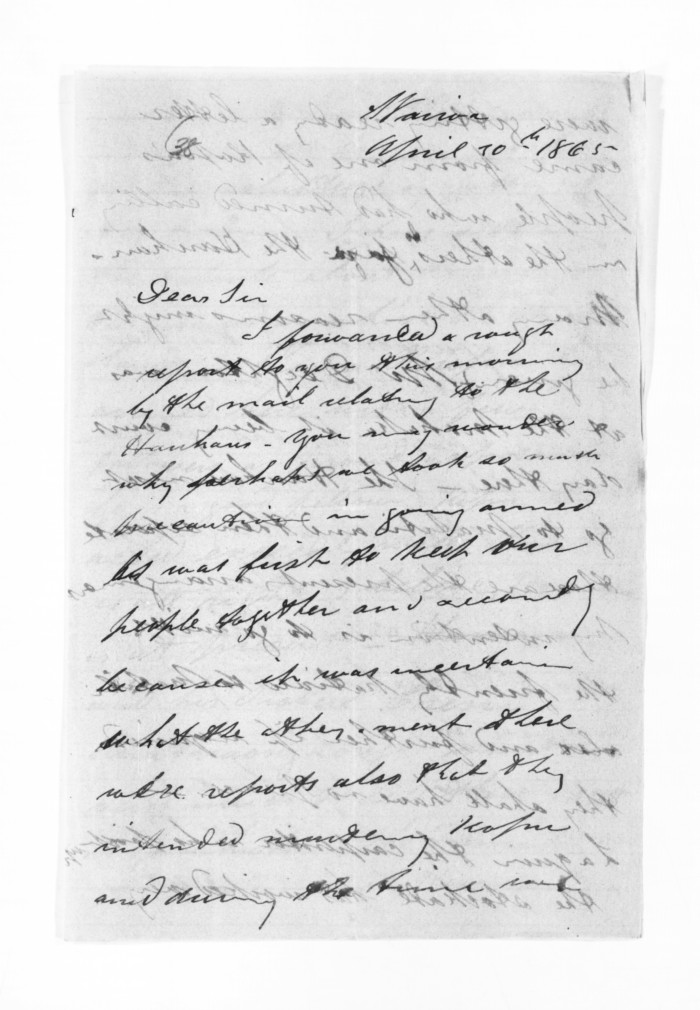 Wairoa
38
April 20th 1865
Dear Sir
I forwarded a rough
report to you this morning
by the mail relating to the
Hauhaus - You may wonder
why perhaps we took so much
precaution in going armed
It was first to keep our
people together and secondly
because it was uncertain
what the others ment there
were reports also that they
intended murdering Kopu
and during the time we